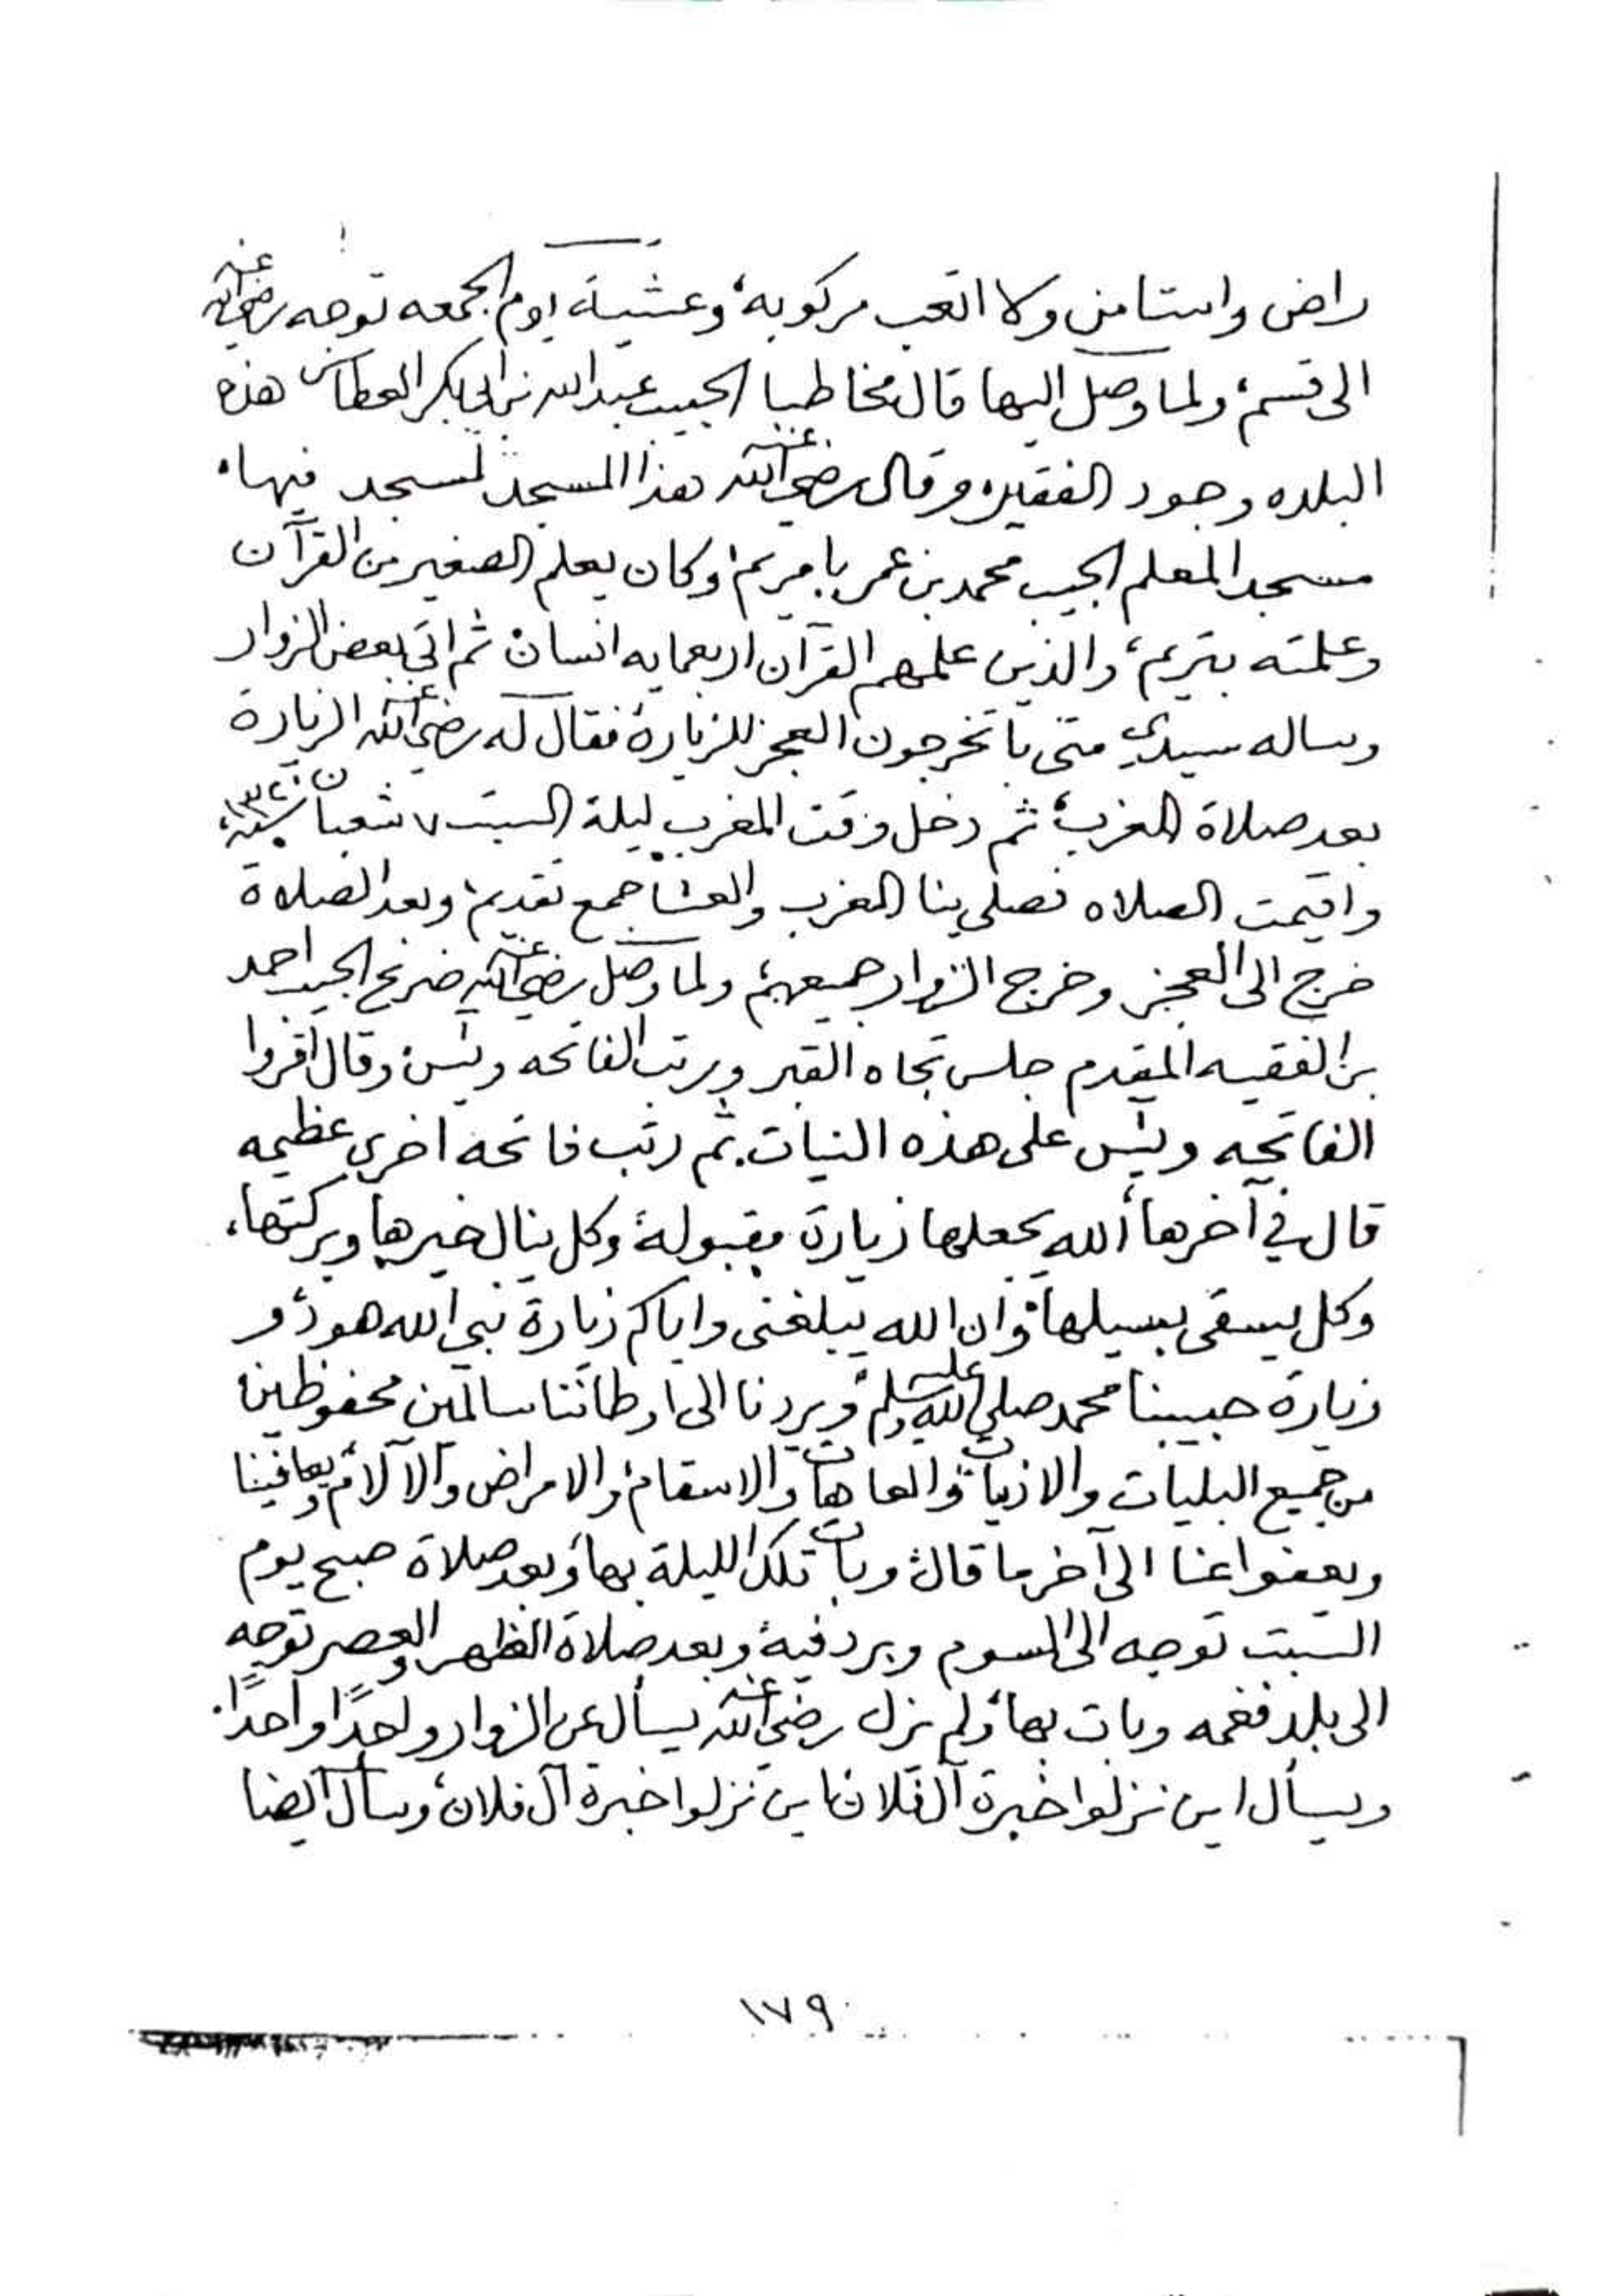 راض وانتا مني ولا اتعب مركوبه، وعشية يوم الجمعه توجه رضي الله عنه
الى قسم، ولما وصل اليها قال مخاطبا الحبيب عبدالله بن ابي بكر العطاس هذه
البلده وجود الفقيه، وقال رضي الله عنه هذا المسجد لمسجد فيها،
مسجد المعلم الحبيب محمد بن عمر بامريم، وكان يعلم الصغير من القرآن
وعلمته بتريم، والذين علمهم القرآن اربعمايه انسان، ثم اتى بعض الزوار
وساله سيدي متى با تخرجون العجز للزيارة، فقال له رضي الله عنه الزيارة
بعد صلاة المغرب، ثم دخل وقت المغرب ليلة السبت ٧ شعبان سنة ١٣٢٠،
واقيمت الصلاه فصلى بنا المغرب والعشا جمع تقديم، وبعد الصلاة
خرج الى العجز وخرج الزوار جميعهم، ولما وصل رضي الله عنه ضريح الحبيب احمد
بن الفقيه المقدم جلس تجاه القبر ورتب الفاتحه ويس، وقال اقروا
الفاتحه ويس على هذه النيات. ثم رتب فاتحه اخرى عظيمه
قال في آخرها، الله يجعلها زيارة مقبولة، وكل ينال خيرها وبركتها،
وكل يسقى بسيلها، وان الله يبلغني واياكم زيارة نبي الله هود، و
زيارة حبيبنا محمد صلى الله عليه وسلم، ويردنا الى اوطاننا سالمين محفوظين
من جميع البليات والاذيات، والعاهات والاسقام، والامراض والآلام، ويعافينا
ويعفوا عنا الى آخر ما قال، وبات تلك الليلة بها، وبعد صلاة صبح يوم
السبت توجه الى السوم وبرد فيه، وبعد صلاة الظهر والعصر توجه
الى بلد فغمه وبات بها، ولم يزل رضي الله عنه يسأل عن الزوار واحدًا واحدًا.
ويسأل اين نزلوا خبرة آل فلان، اين نزلوا خبرة آل فلان، وسأل ايضا
١٧٩